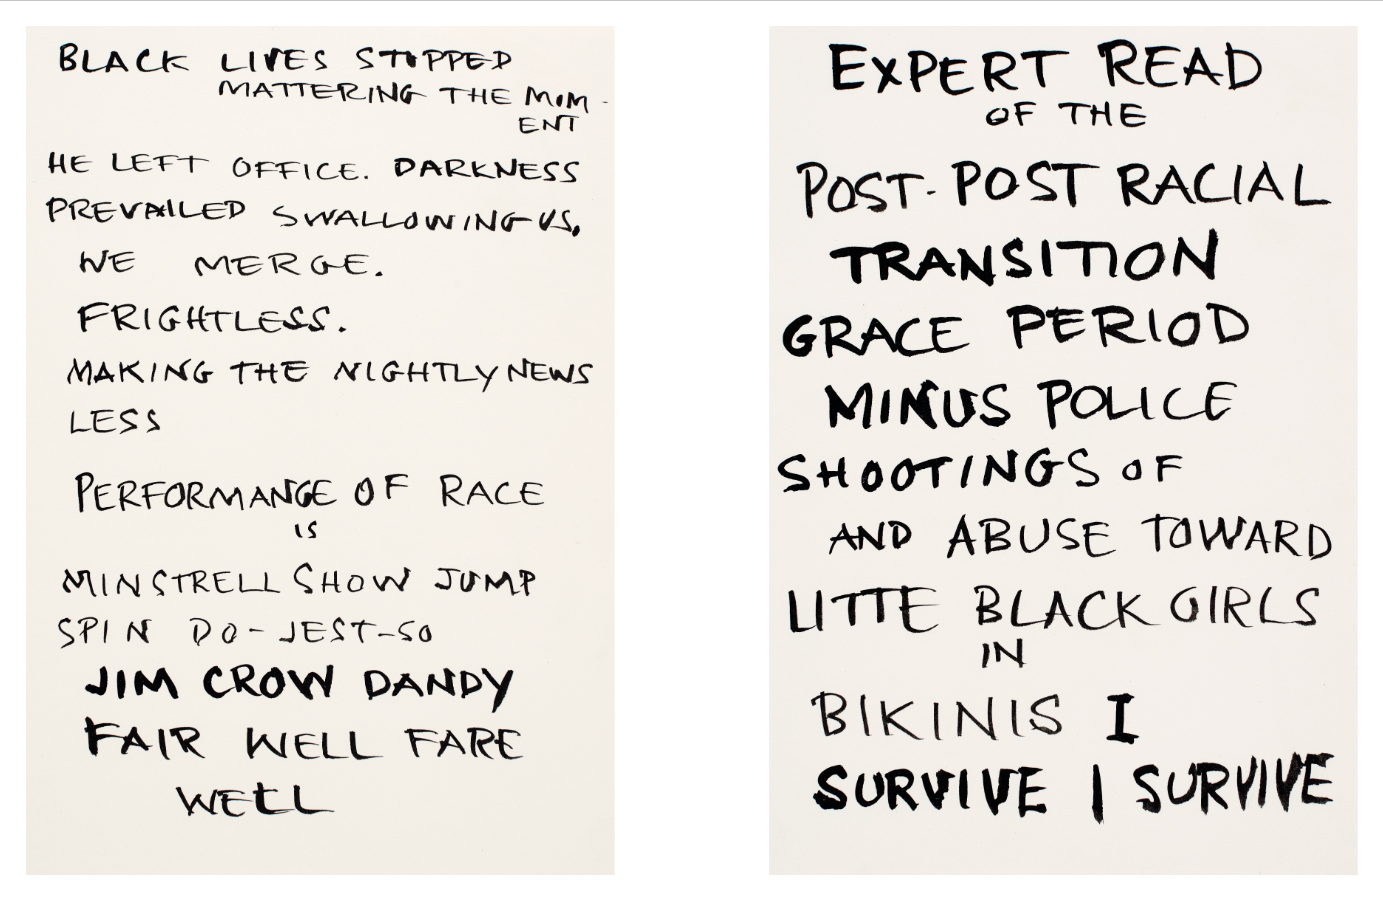 BLACK LIVES STOPPED
MATTERING THE MOM-
ENT
HE LEFT OFFICE. DARKNESS
PREVAILED SWALLOWING US.
WE MERGE.
FRIGHTLESS.
MAKING THE NIGHTLY NEWS
LESS
PERFORMANCE OF RACE
IS
MINSTRELL SHOW JUMP
SPIN DO-JEST-SO
JIM CROW DANDY
FAIR WELL FARE
WELL
EXPERT READ
OF THE
POST-POST RACIAL
TRANSITION
GRACE PERIOD
MINUS POLICE
SHOOTINGS OF
AND ABUSE TOWARD
LITTE BLACK GIRLS
IN
BIKINIS I
SURVIVE I SURVIVE